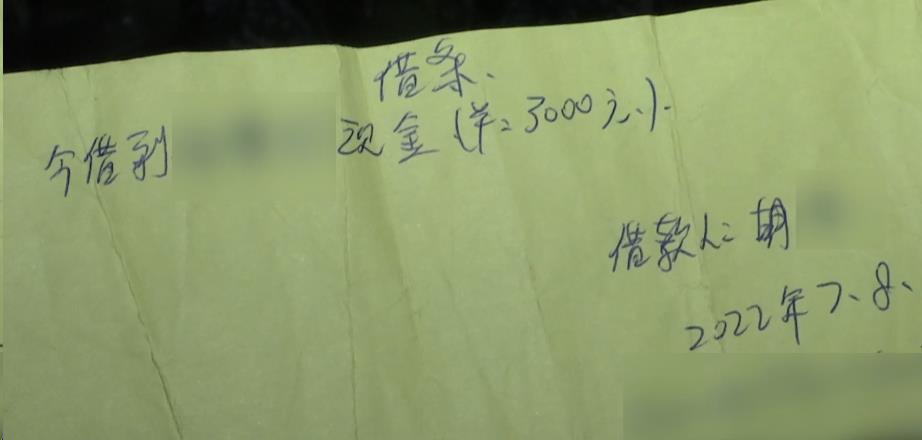 借条、
今借到 现金(羊:3000元、).
借款人:胡
2022年7、8、